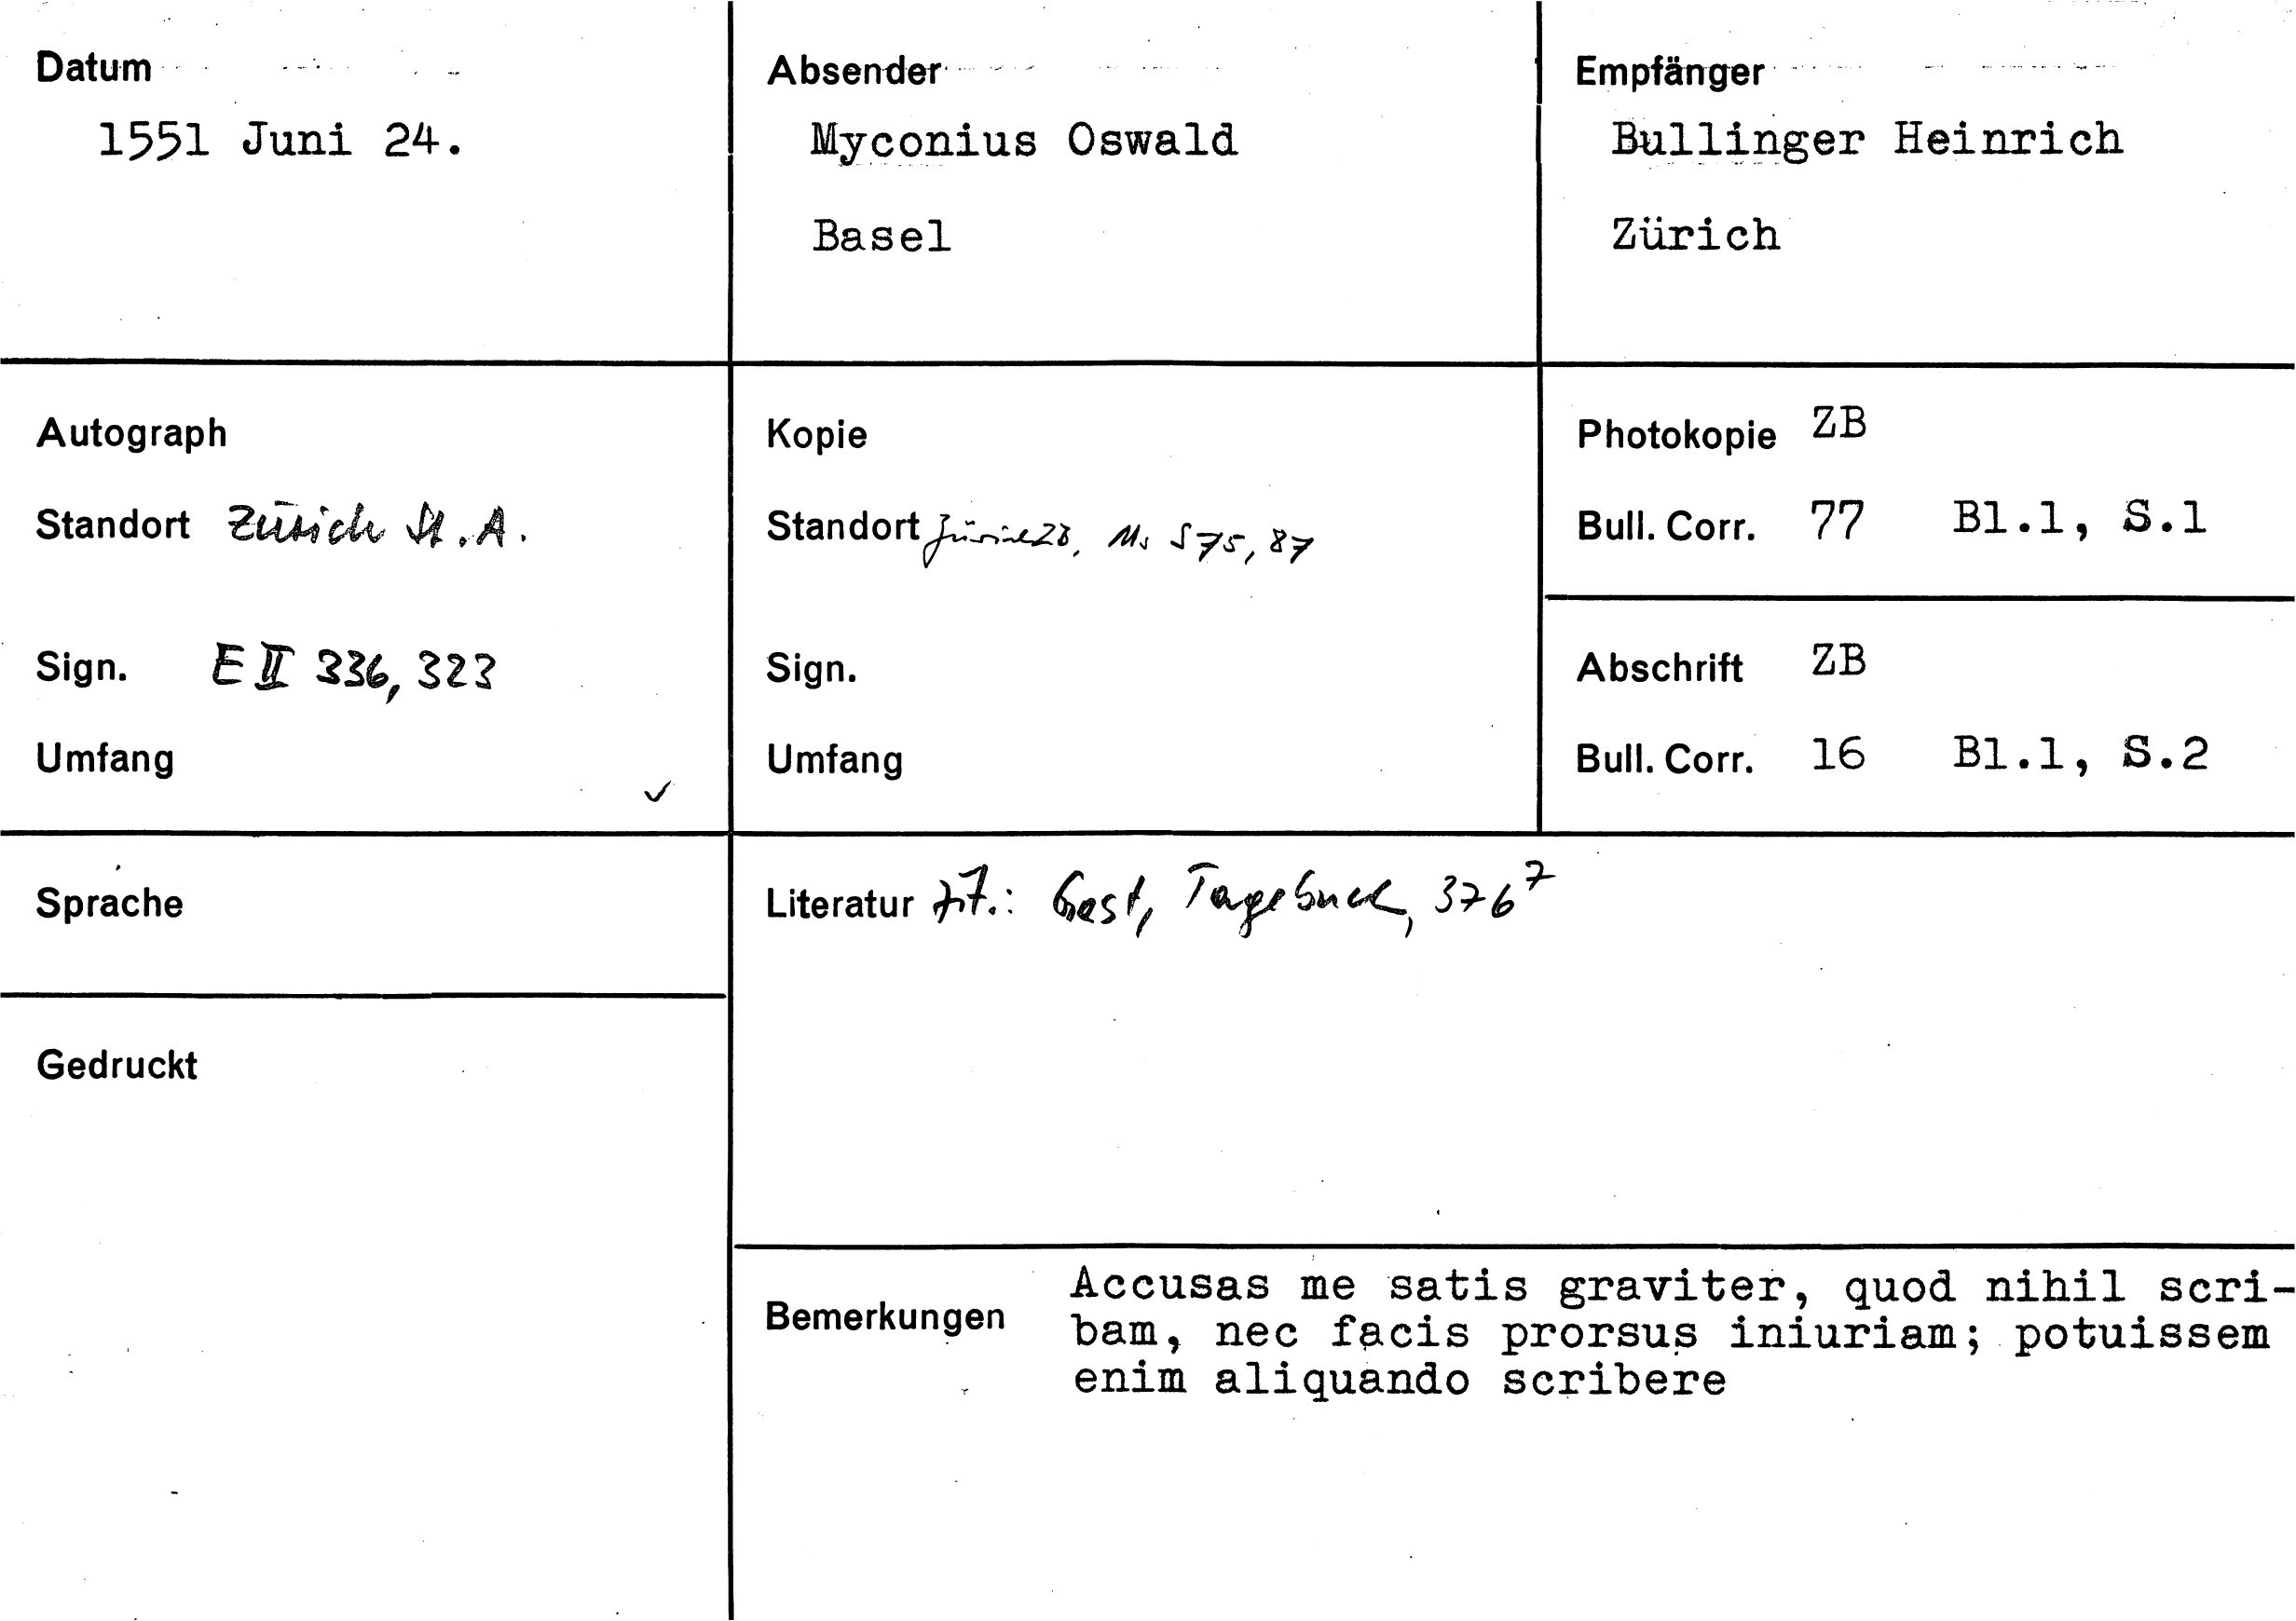 Datum
1551 Juni 24.
Absender
Myconius Oswald
Basel
Empfänger
Bullinger Heinrich
Zürich
Autograph
Standort Zürich St.A.
Sign. E II 336, 323
Umfang ✓
Kopie
Standort Zürich ZB, Ms S 75, 87
Sign.
Umfang
Photokopie ZB
Bull. Corr. 77 Bl.1, S.1
Abschrift ZB
Bull. Corr. 16 Bl.1, S.2
Sprache
Gedruckt
Literatur zit.: Gast, Tagebuch, 376⁷
Bemerkungen
Accusas me satis graviter, quod nihil scri-
bam, nec facis prorsus iniuriam; potuissem
enim aliquando scribere